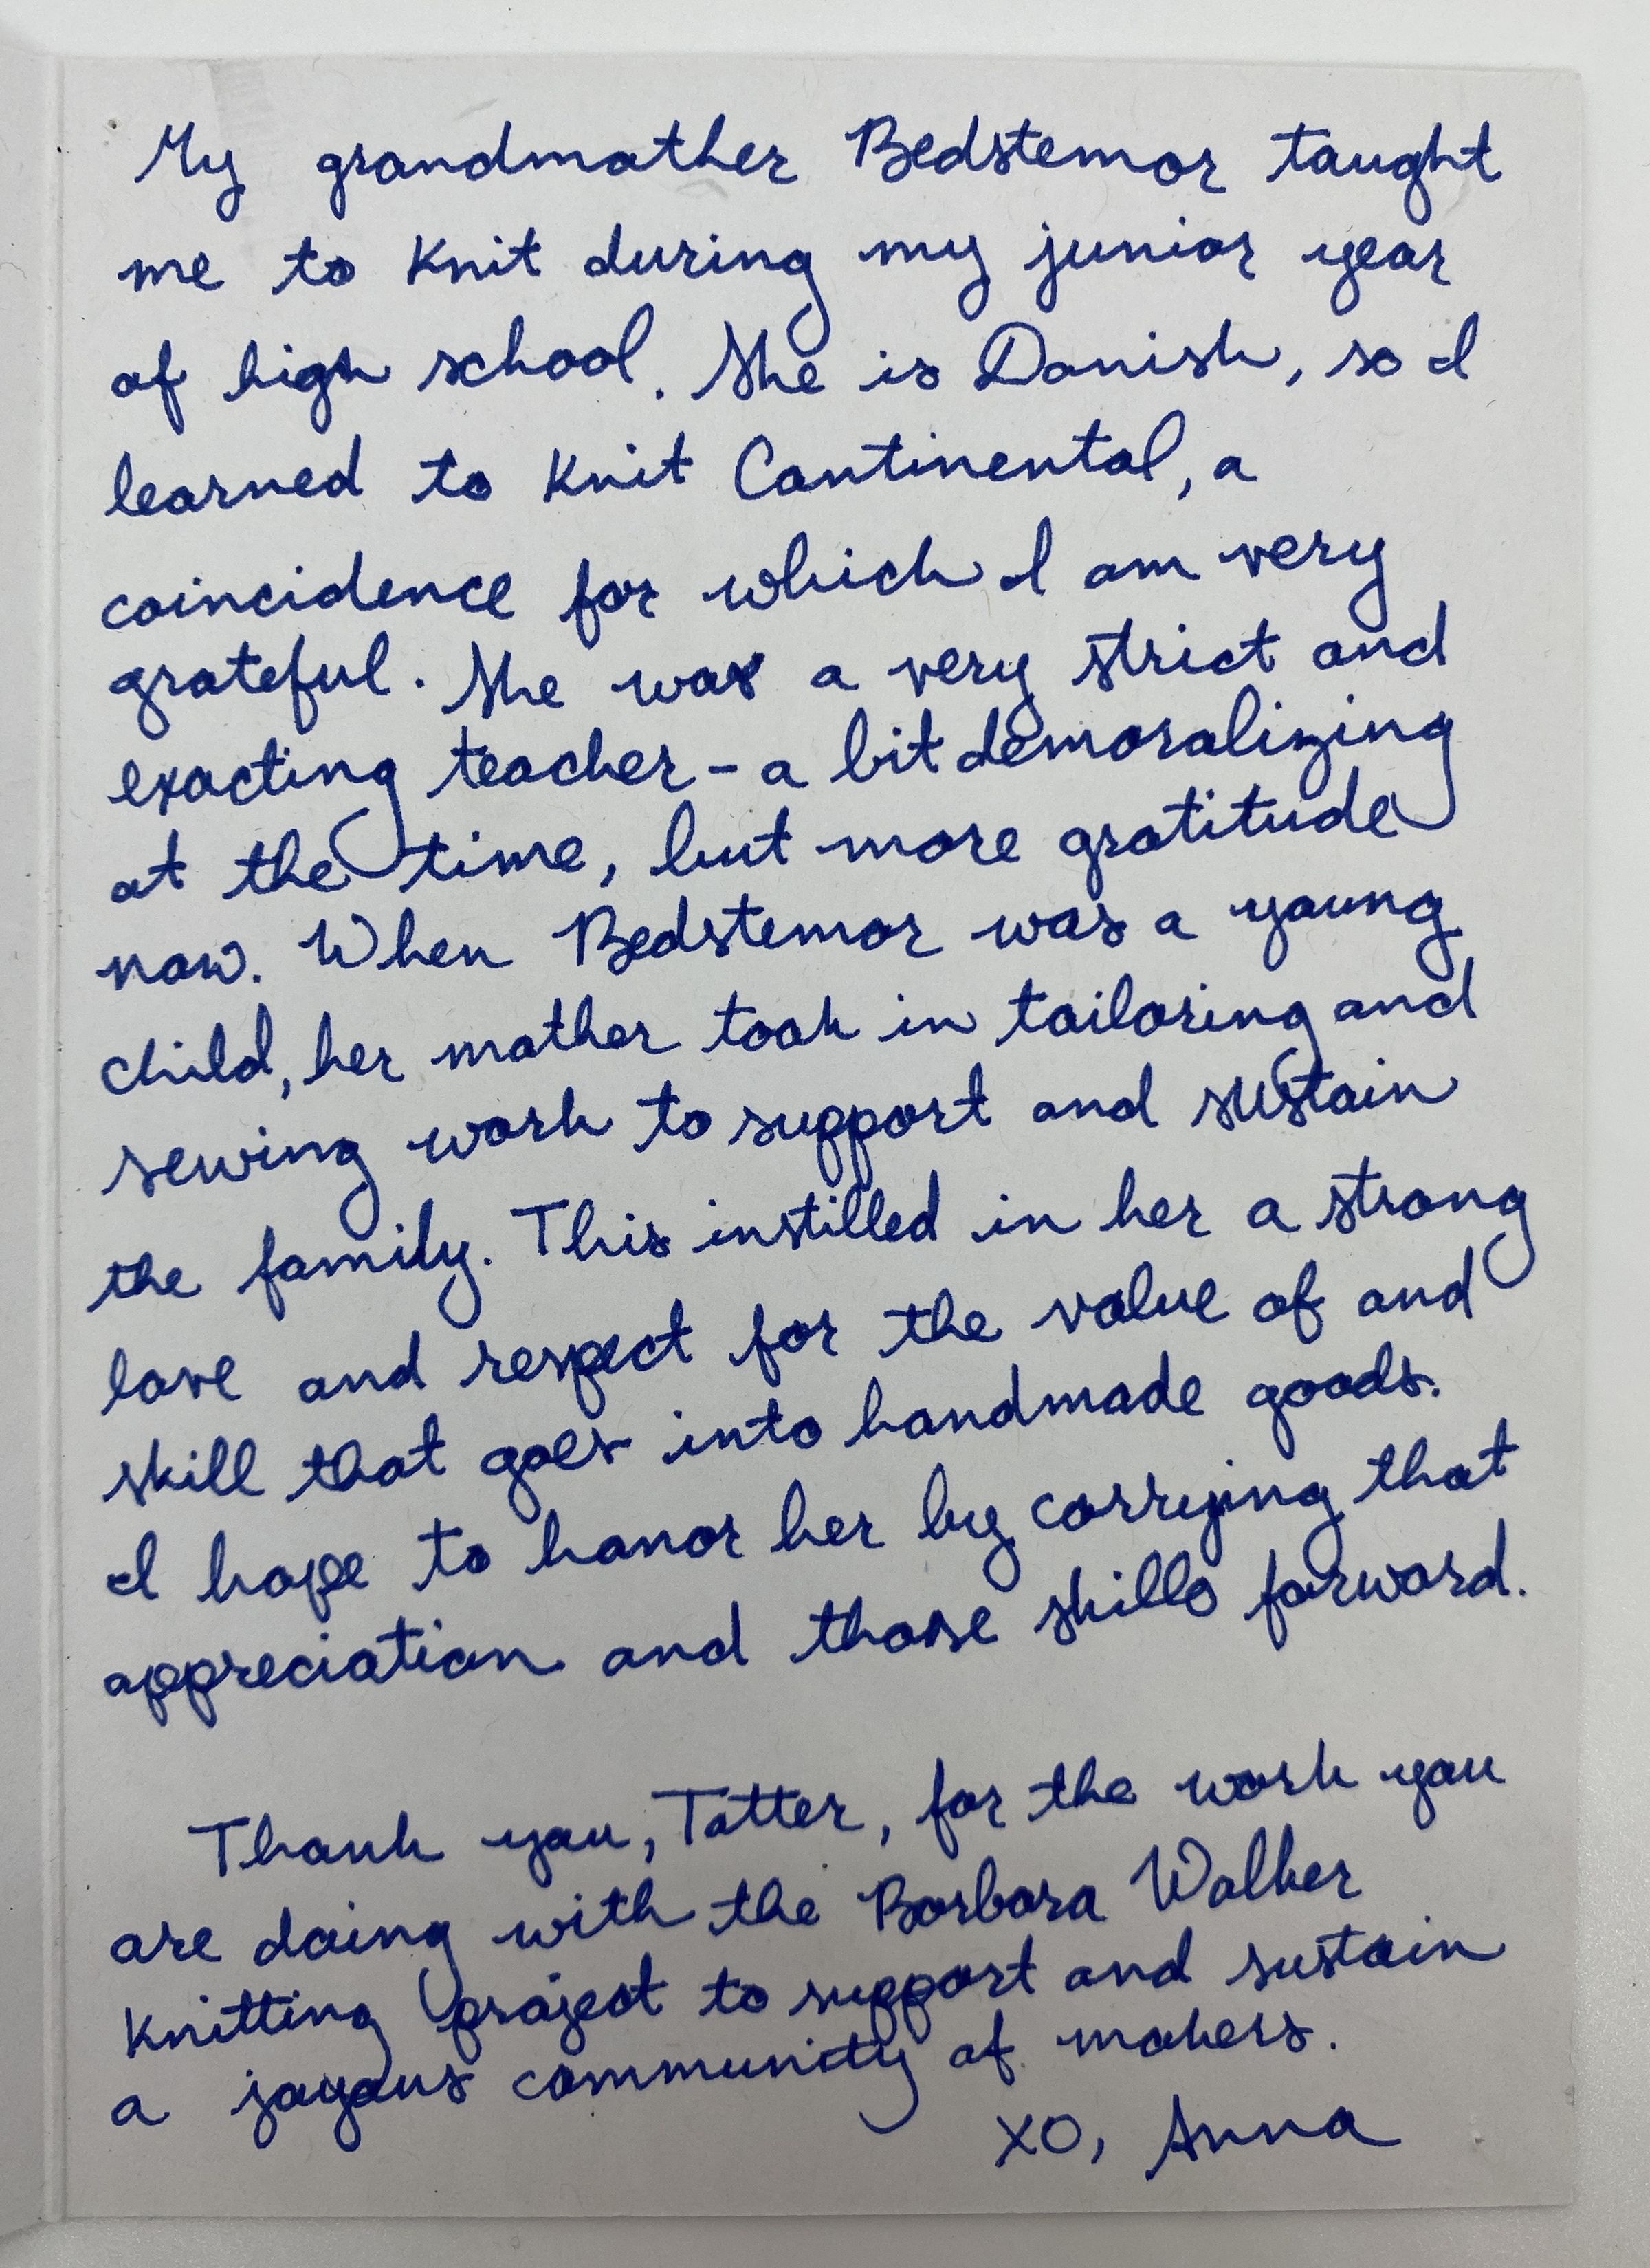 My grandmother Bedstemor taught
me to knit during my junior year
of high school. She is Danish, so I
learned to knit Continental, a
coincidence for which I am very
grateful. She was a very strict and
exacting teacher - a bit demoralizing
at the time, but more gratitude
now. When Bedstemor was a young
child, her mother took in tailoring and
sewing work to support and sustain
the family. This instilled in her a strong
love and respect for the value of and
skill that goes into handmade goods.
I hope to honor her by carrying that
appreciation and those skills forward.
Thank you, Tatter, for the work you
are doing with the Barbara Walker
Knitting project to support and sustain
a joyous community of makers.
XO, Anna